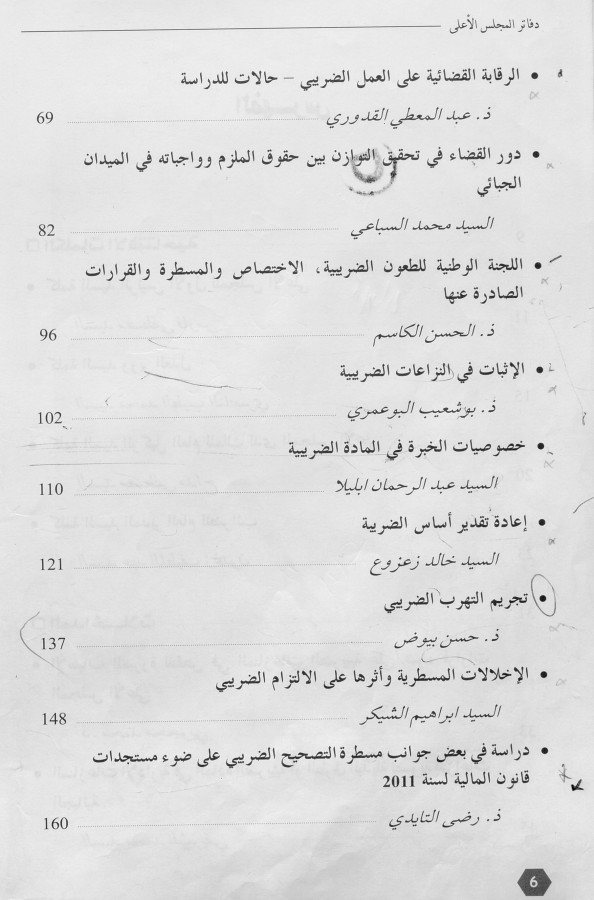 دفاتر المجلس الأعلى
• الرقابة القضائية على العمل الضريبي – حالات للدراسة
ذ. عبد المعطي القدوري 69
• دور القضاء في تحقيق التوازن بين حقوق الملزم وواجباته في الميدان
الجبائي
السيد محمد السباعي 82
• اللجنة الوطنية للطعون الضريبية، الاختصاص والمسطرة والقرارات
الصادرة عنها
ذ. الحسن الكاسم 96
• الإثبات في النزاعات الضريبية
ذ. بوشعيب البوعمري 102
• خصوصيات الخبرة في المادة الضريبية
السيد عبد الرحمان ابليلا 110
• إعادة تقدير أساس الضريبة
السيد خالد زعزوع 121
• تجريم التهرب الضريبي
ذ. حسن بيوض 137
• الإخلالات المسطرية وأثرها على الالتزام الضريبي
السيد ابراهيم الشيكر 148
• دراسة في بعض جوانب مسطرة التصحيح الضريبي على ضوء مستجدات
قانون المالية لسنة 2011
ذ. رضى التايدي 160
6